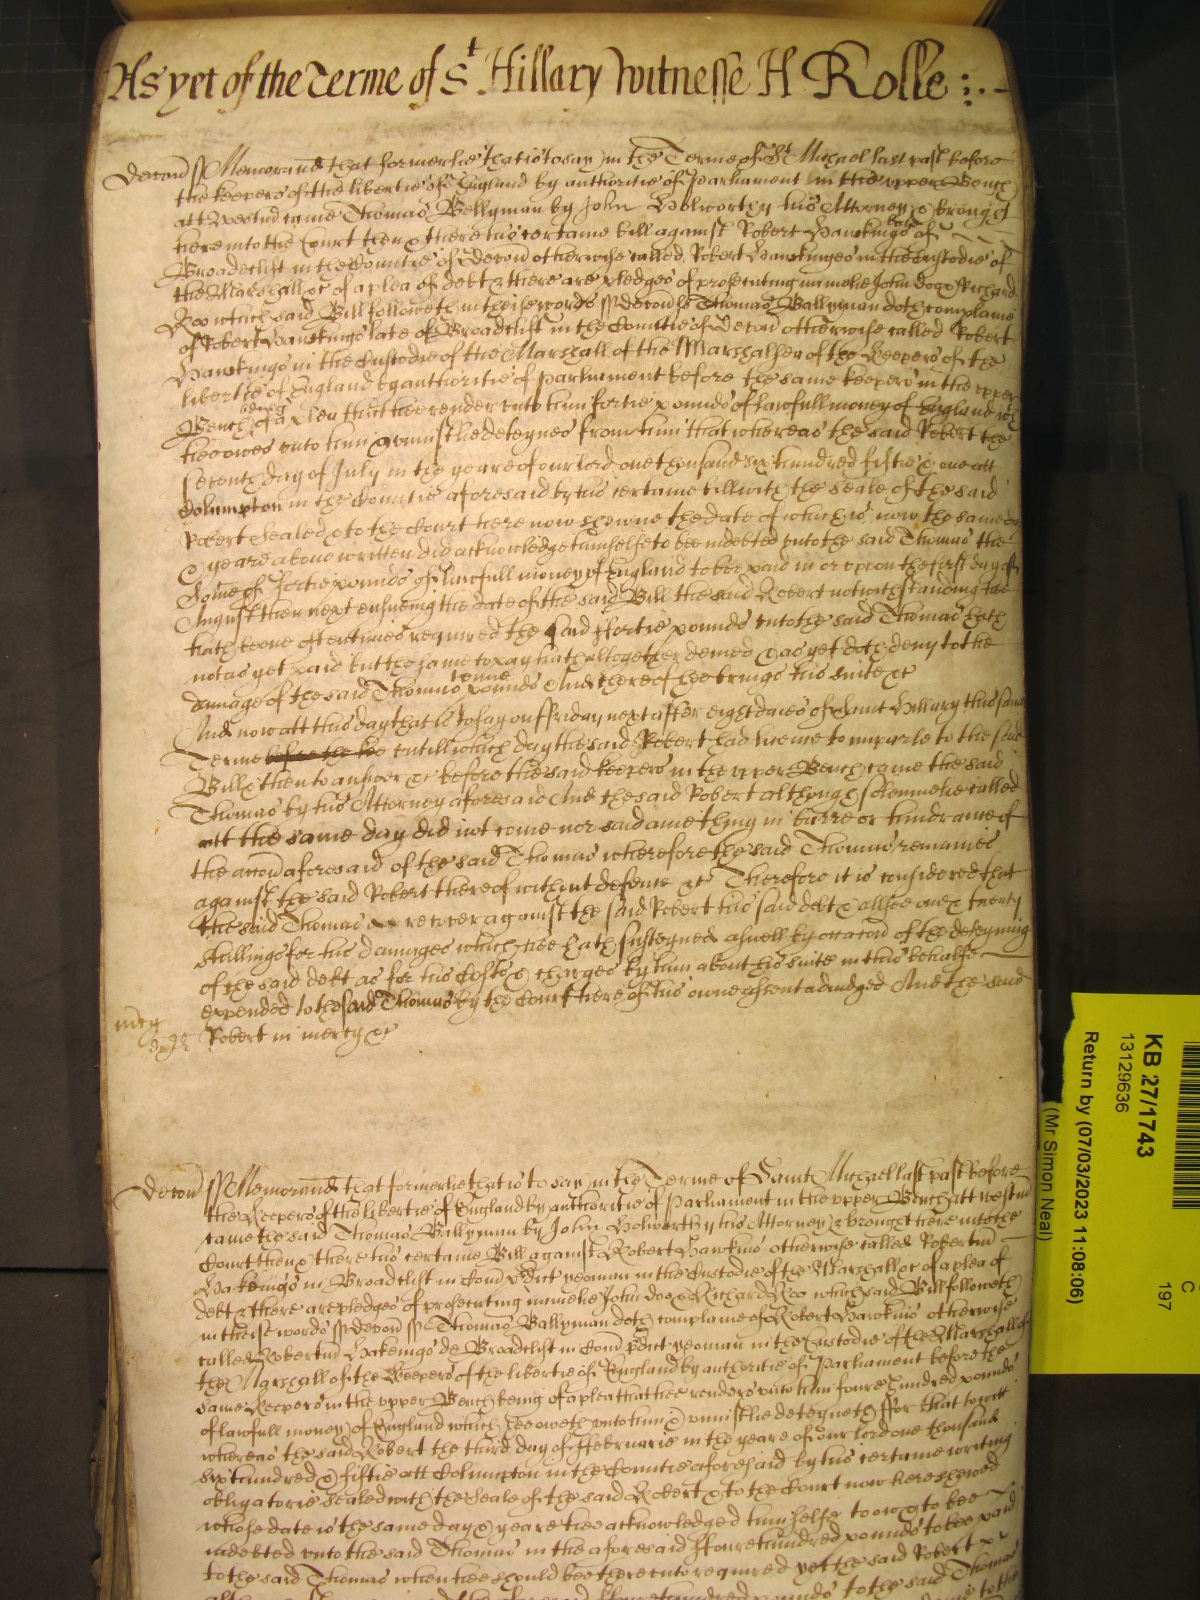 As yet of the Terme of St Hillary Witnesse H Rolle :.-
Devon ss Memorand that formerlie that is to say in the Terme of St Michael last past before
the keepers of the libertie of England by authoritie of Parliament in the upper Bench
att Westm came Thomas Ballyman by John Holworthy his Attorney & brought
here into the Court then & there his certaine bill against Robert Hawkings late of
Broadclist in the Countie of Devon otherwise called Robert Hawkinges in the Custodie of
the Marshall &c of a plea of debt & there are pledges of prosecuting namelie John Doo & Richard
Roo which said Bill followeth in theise words ss Devon ss Thomas Ballyman doth complaine
of Robert Hawkings late of Broadclist in the Countie of Devon otherwise called Robert
Hawkings in the Custodie of the Marshall of the Marshalsea of the Keepers of the
libertie of England by authoritie of Parliament before the same keepers in the upper
Bench being of a plea that hee render unto him fortie pounds of lawfull money of England wch
hee owes unto him & uniustlie deteynes from him that whereas the said Robert the
seventh day of July in the yeare of our lord one thousand six hundred fiftie & one att
Columpton in the Countie aforesaid by his certaine bill with the seale of the said
Robert sealed & to the Court here now shewne the date of which is now the same day
& yeare above written did acknowledge himselfe to bee indebted unto the said Thomas the
Some of fortie pounds of lawfull money of England to bee paid in or uppon the first day of
August then next ensueing the date of the said Bill the said Robert notwithstanding hee
hath beene oftentimes required the said ffortie pounds unto the said Thomas hath
not as yet paid but the same to pay hath altogether denied & as yet doth deny to the
damage of the said Thomas tenne pounds And thereof hee brings his suite &c
And now att this day that is to say on ffriday next after eight daies of Saint Hillary this same
Terme untill which day the said Robert had licence to imparle to the said
Bill & then to answer &c before the said keepers in the upper Bench came the said
Thomas by his Attorney aforesaid And the said Robert although solemnelie called
att the same day did not come nor said anie thing in barre or hindrance of
the accon aforesaid of the said Thomas wherefore the said Thomas remaines
against the said Robert thereof without defense &c Therefore it is considered that
the said Thomas recover against the said Robert his said debt & allsoe one & twenty
shillings for his damages which hee hath susteyned aswell by occacon of the deteyning
of the said debt as for his Costs & charges by him about his suite in this behalfe
expended to the said Thomas by the Court here of his owne assent adiudged And the said
mcy
Robert in mercy &c
Devon ss Memorand that formerlie that is to say in the Terme of Saint Michael last past before
the Keepers of the libertie of England by authoritie of Parliament in the upper Bench att Westm
came the said Thomas Ballyman by John Holworthy his Attorney & brought here into the
Court then & there his certaine Bill against Robert Hawkins otherwise called Robertu
Hakeings in Broadclist in Com pdict yeoman in the Custodie of the Marshall &c of a plea of
debt & there are pledges of prosecuting namelie John Doo & Richard Roo which said Bill followeth
in theise words ss Devon ss Thomas Ballyman doth complaine of Robert Hawkins otherwise
called Robertu Hakeings de Broadclist in Com pdict yeoman in the Custodie of the Marshall of
the Marshall of the Keepers of the libertie of England by authoritie of Parliament before the
same Keepers in the upper Bench being of a plea that hee render unto him foure hundred pounds
of lawfull money of England which hee oweth unto him & uniustlie deteyneth ffor that to witt
whereas the said Robert the third day of ffebruarie in the yeare of our lord one thousand
six hundred & fiftie att Columpton in the Countie aforesaid by his certaine writing
obligatorie sealed with the seale of the said Robert & to the Court now here shewed
whose date is the same day & yeare hee acknowledged himselfe to owe & to bee
indebted unto the said Thomas in the aforesaid ffoure hundred pounds to bee paid
to the said Thomas when hee should bee thereunto required yet the said Robert
pounds to the said Thomas
KB 27/1743
13129636
Return by (07/03/2023 11:08:06)
(Mr Simon Neal)
C
197